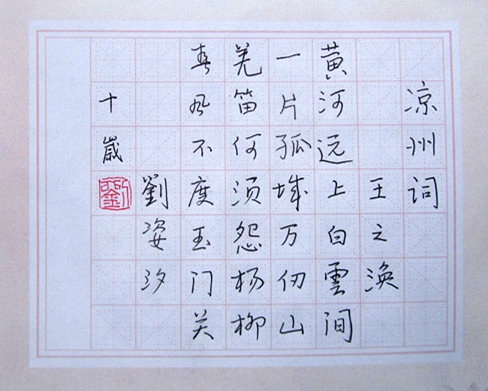 凉州词
王之涣
黄河远上白雲间
一片孤城万仞山
羌笛何须怨杨柳
春风不度玉门关
劉姿汐
十歲